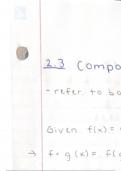 2.3 Compo
- refer to bo
Given f(x) =
→ f∘g(x) = f(